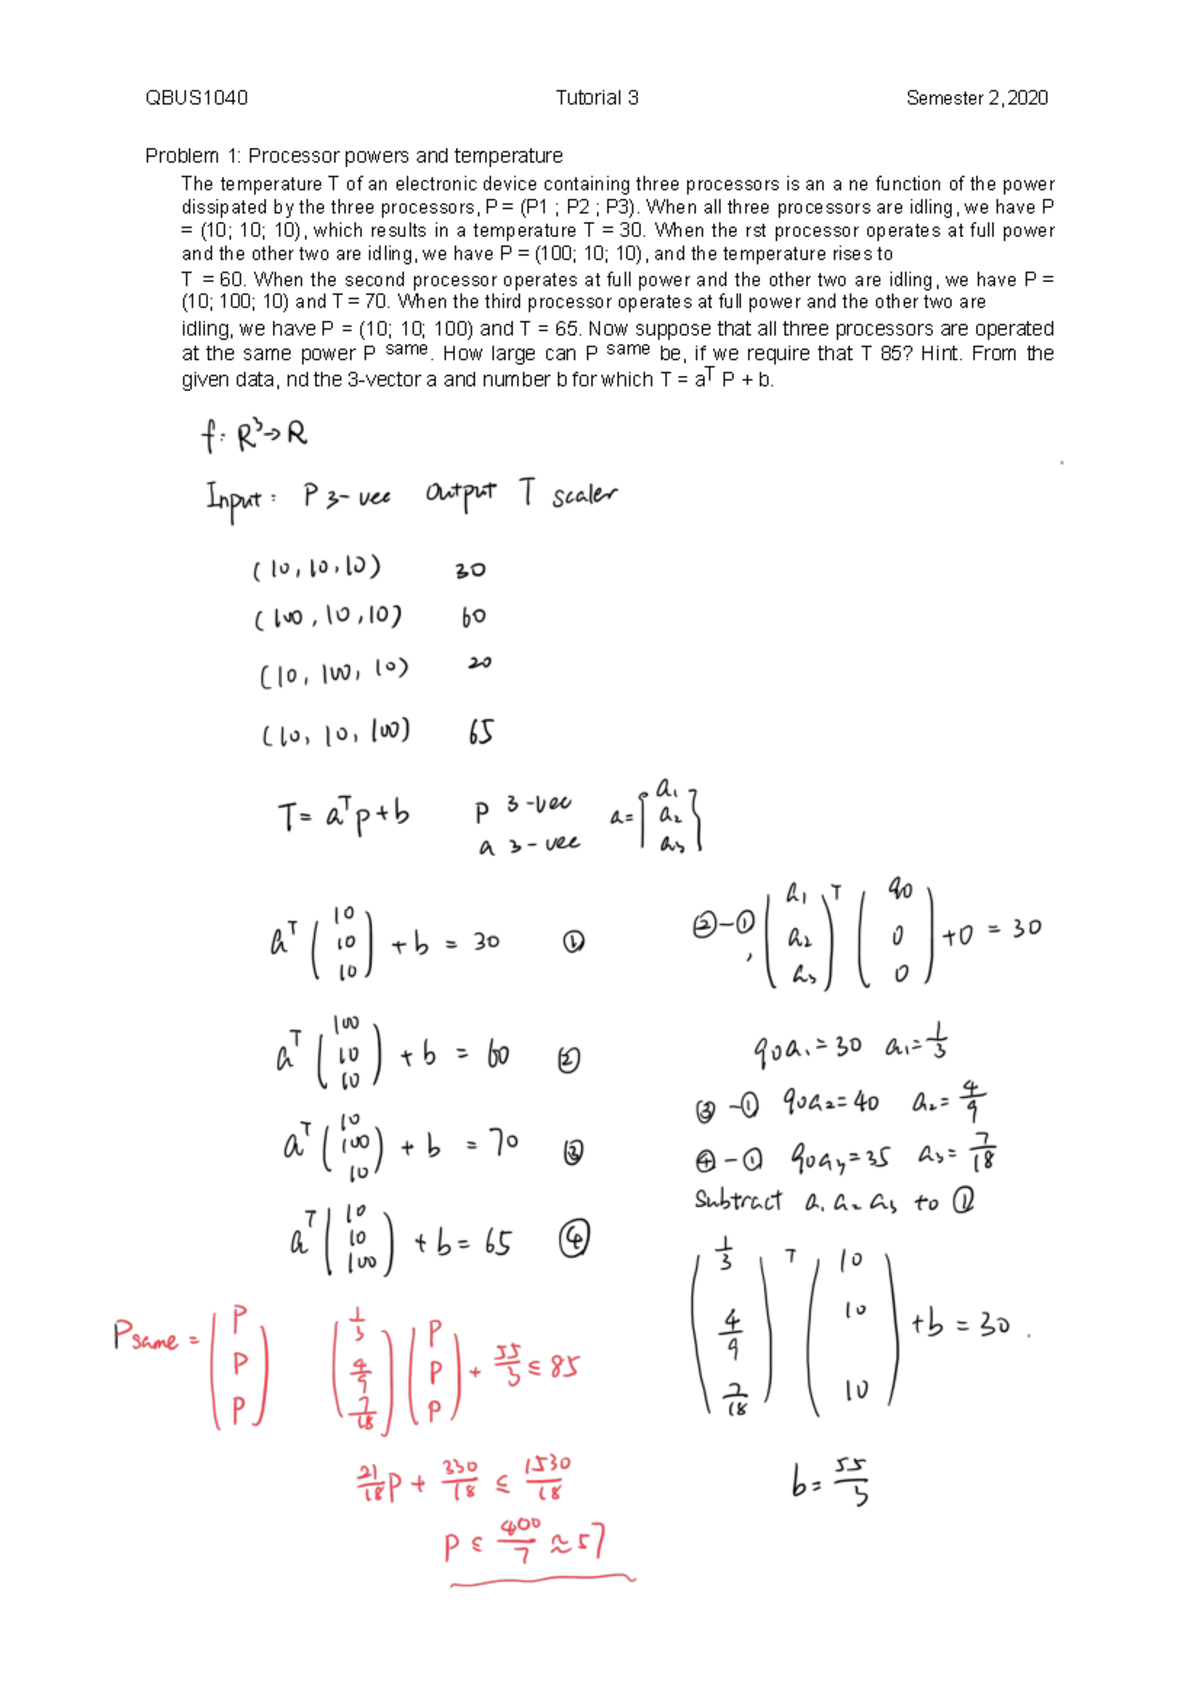 QBUS1040 Tutorial 3 Semester 2, 2020
Problem 1: Processor powers and temperature
The temperature T of an electronic device containing three processors is an a ne function of the power
dissipated by the three processors, P = (P1 ; P2 ; P3). When all three processors are idling, we have P
= (10; 10; 10), which results in a temperature T = 30. When the rst processor operates at full power
and the other two are idling, we have P = (100; 10; 10), and the temperature rises to
T = 60. When the second processor operates at full power and the other two are idling, we have P =
(10; 100; 10) and T = 70. When the third processor operates at full power and the other two are
idling, we have P = (10; 10; 100) and T = 65. Now suppose that all three processors are operated
at the same power P same. How large can P same be, if we require that T 85? Hint. From the
given data, nd the 3-vector a and number b for which T = aT P + b.
f: R³→R
Input: P 3-vec Output T scaler
(10, 10, 10) 30
(100, 10, 10) 60
(10, 100, 10) 20
(10, 10, 100) 65
T = aᵀp + b P 3-vec a = [a₁ a₂ a₃]
a 3-vec
aᵀ (10 10 10) + b = 30 ①
aᵀ (100 10 10) + b = 60 ②
aᵀ (10 100 10) + b = 70 ③
aᵀ (10 10 100) + b = 65 ④
②-①, (a₁ a₂ a₃)ᵀ (90 0 0) + 0 = 30
90a₁ = 30 a₁ = 1/3
③-① 90a₂ = 40 a₂ = 4/9
④-① 90a₃ = 35 a₃ = 7/18
Subtract a₁ a₂ a₃ to ①
(1/3 4/9 7/18)ᵀ (10 10 10) + b = 30.
b = 55/3
Psame = (P P P) (1/3 4/9 7/18) (P P P) + 55/3 ≤ 85
21/18 P + 330/18 ≤ 1530/18
P ≤ 400/7 ≈ 57